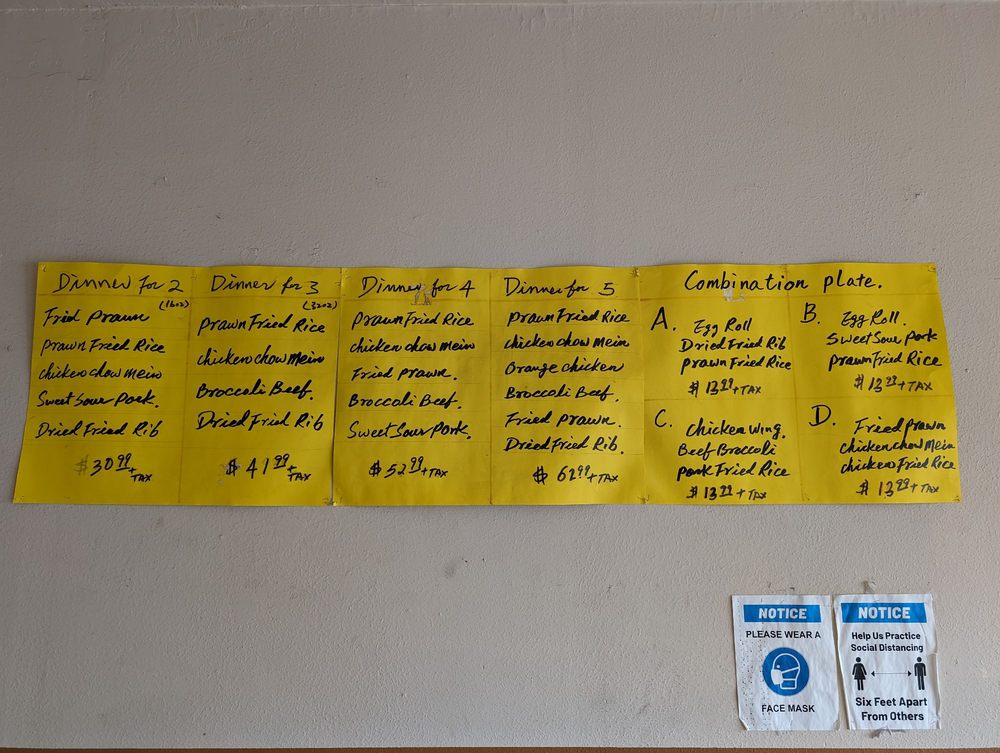 Dinner for 2
(16oz)
Fried Prawn
Prawn Fried Rice
chicken chow mein
Sweet Sour Pork.
Dried Fried Rib
$30.99 + TAX
Dinner for 3
(32oz)
Prawn Fried Rice
chicken chow mein
Broccoli Beef.
Dried Fried Rib
$41.99 + TAX
Dinner for 4
Prawn Fried Rice
chicken chow mein
Fried prawn.
Broccoli Beef.
Sweet Sour Pork.
$52.99 + TAX
Dinner for 5
Prawn Fried Rice
chicken chow mein
Orange chicken
Broccoli Beef.
Fried prawn.
Dried Fried Rib.
$62.99 + TAX
Combination plate.
A. Egg Roll
Dried Fried Rib
prawn Fried Rice
$13.99 + TAX
B. Egg Roll.
Sweet Sour Pork
prawn Fried Rice
$13.99 + TAX
C. Chicken wing.
Beef Broccoli
Pork Fried Rice
$13.99 + TAX
D. Fried prawn
chicken chow mein
chicken Fried Rice
$13.99 + TAX
NOTICE
PLEASE WEAR A
FACE MASK
NOTICE
Help Us Practice
Social Distancing
Six Feet Apart
From Others